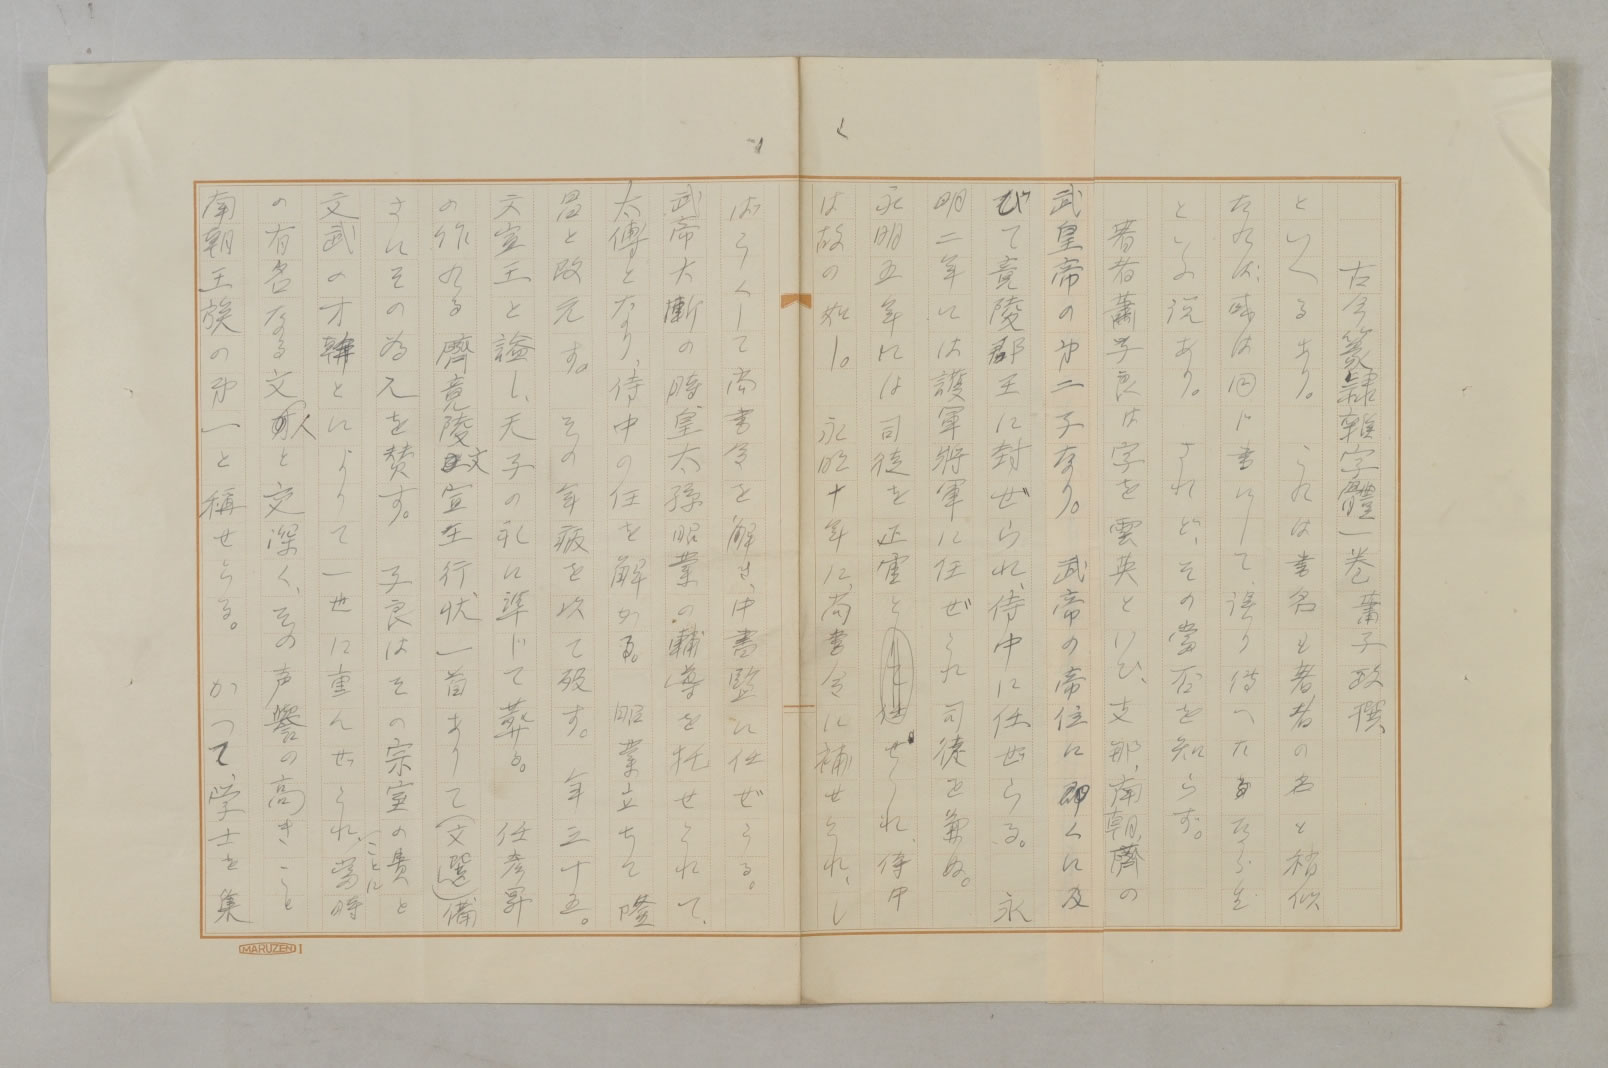 古今篆隷雜字體一巻 蕭子政撰
といへるあり。これは書名も著者の名も稍似
たれば、或は同じ書にして、誤り傳へたるならむ
といふ説あり。されど、その當否を知らず。
著者蕭子良は字を雲英といひ、支那、南朝、齊の
武皇帝の第二子なり。 武帝の帝位に即くに及
びて竟陵郡王に封ぜられ、侍中に任ぜらる。 永
明二年には護軍將軍に任ぜられ司徒を兼ぬ。
永明五年には司徒を正 せられ、侍中
は故の如し。 永明十年に、尚書令に補せられ、し
ばらくして尚書令を解せ、中書監に任ぜらる。
武帝大漸の時皇太孫昭業の輔導を托せられて、
太傅となり、侍中の任を解かる。 昭業立ちて隆
昌と改元す。 その年病を以て歿す。 年三十五。
文宣王と謚し、天子の礼に準じて葬る。 任彦昇
の作れる齊竟陵文宣王行状一首ありて(文選)備
さにその為人を賛す。 子良はその宗室の貴と
文武の才幹とによりて一世に重んせられ、ことに當時
の有名なる文人と交深く、その声譽の高きこと
南朝王族の第一と稱せらる。 かつて、学士を集
MARUZEN 1